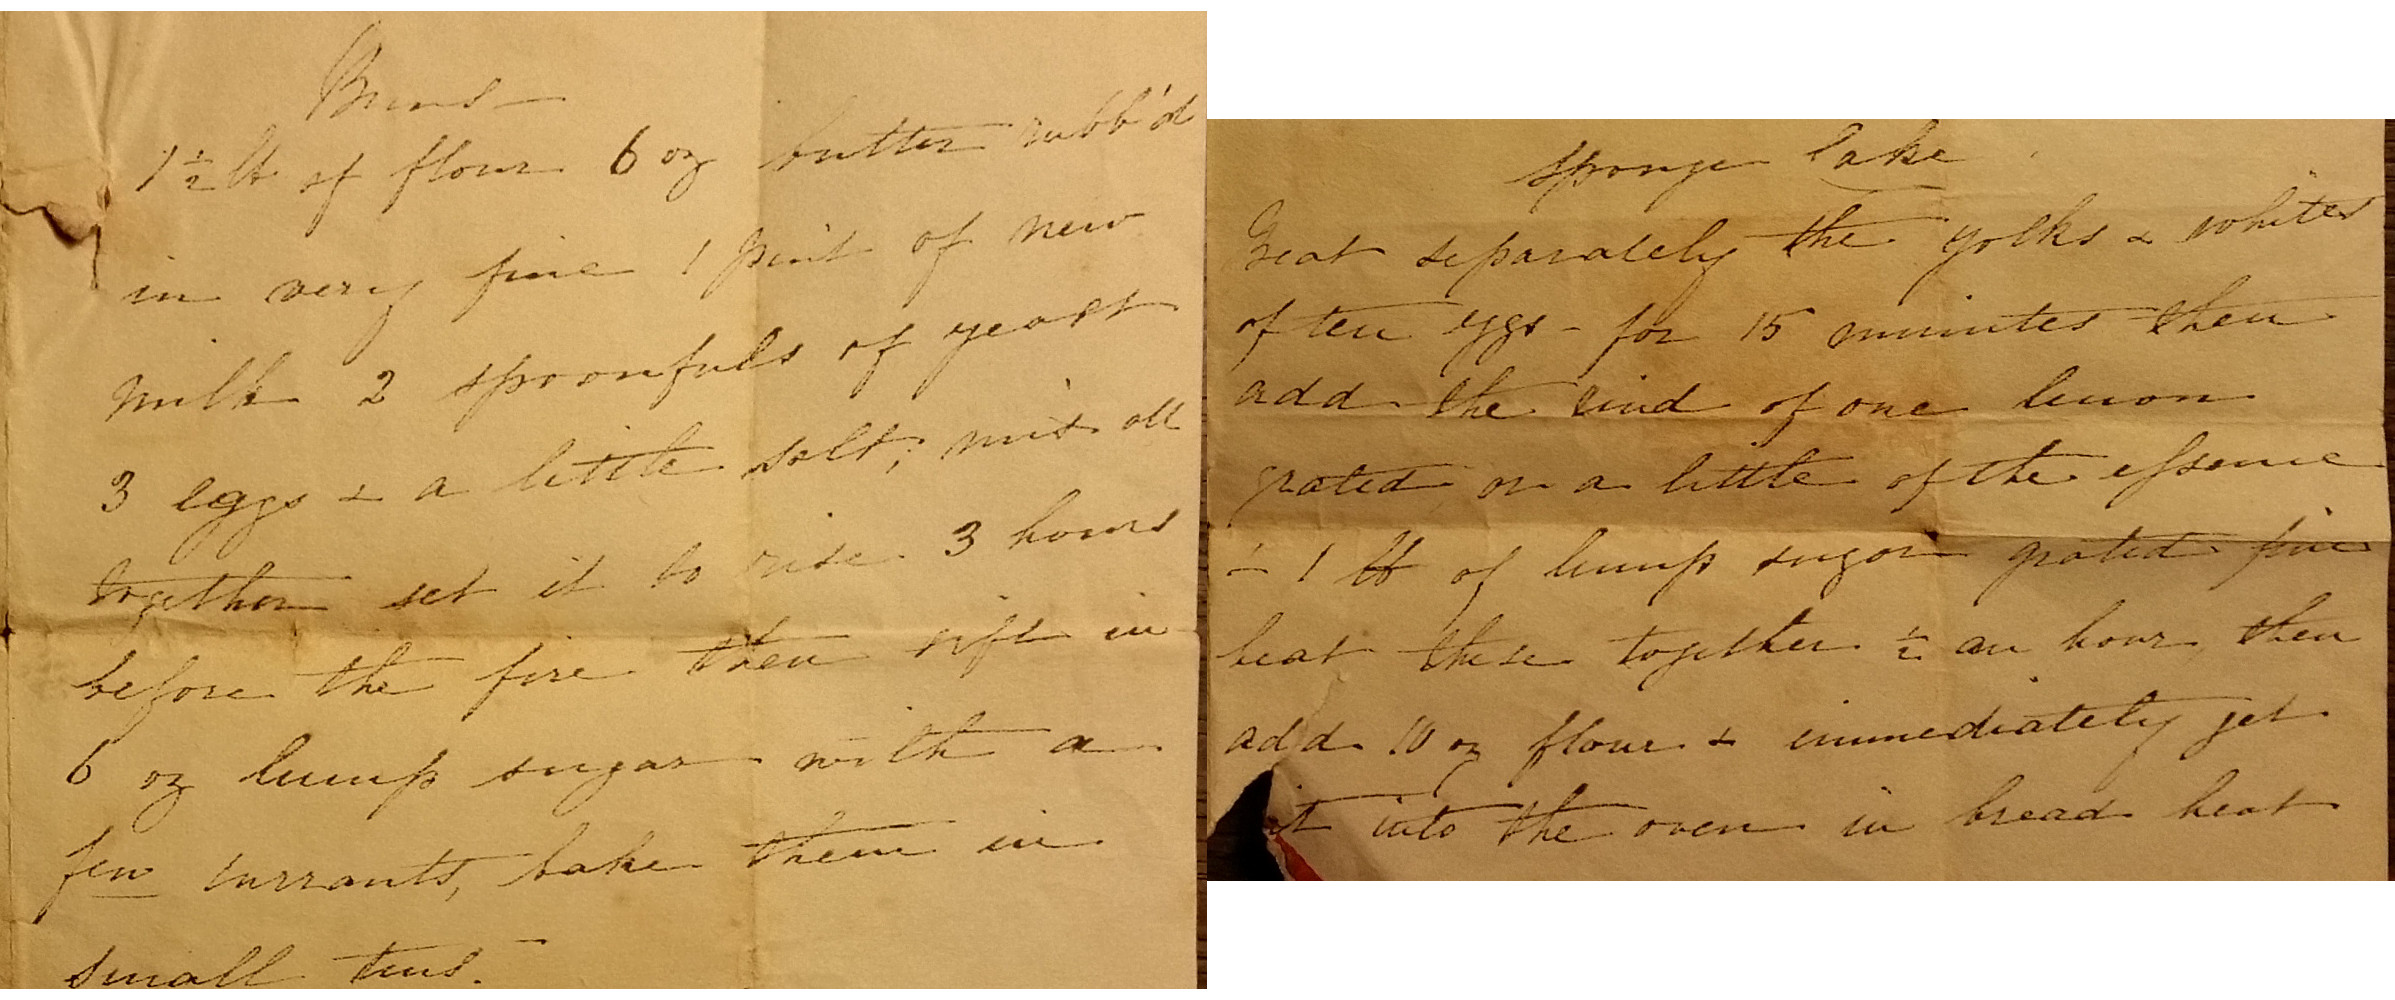 Buns —
1 1/2 lb of flour 6 oz butter rubb'd
in very fine 1 pint of new
milk 2 spoonfuls of yeast
3 eggs & a little salt; mix all
together set it to rise 3 hours
before the fire then sift in
6 oz lump sugar with a
few currants, bake them in
small tins. —
Sponge Cake
Beat separately the yolks & whites
of ten eggs - for 15 minutes then
add the rind of one lemon
grated, or a little of the essence
- 1 lb of lump sugar grated fine
beat these together 1/2 an hour, then
add 10 oz flour & immediately get
it into the oven in bread heat